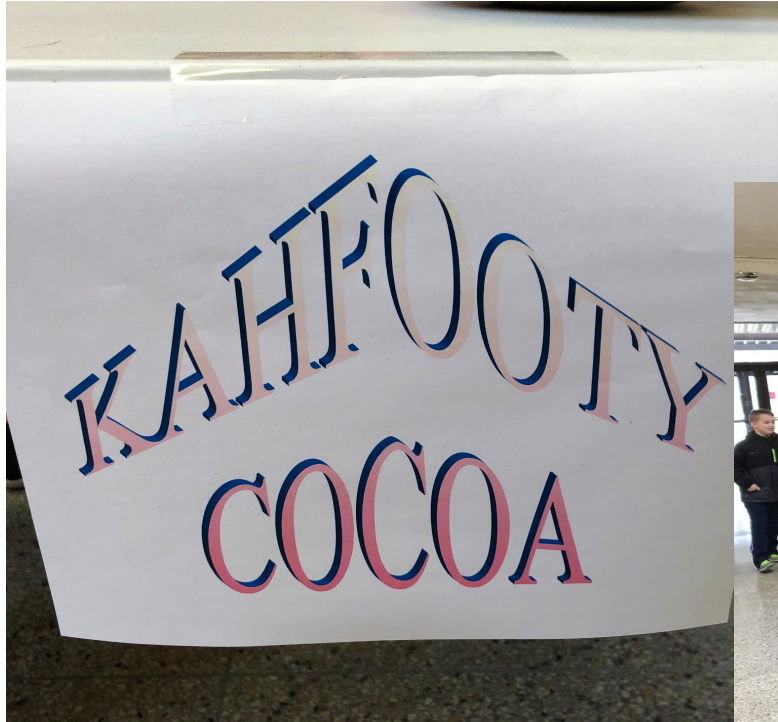 KAHFOOTY
COCOA